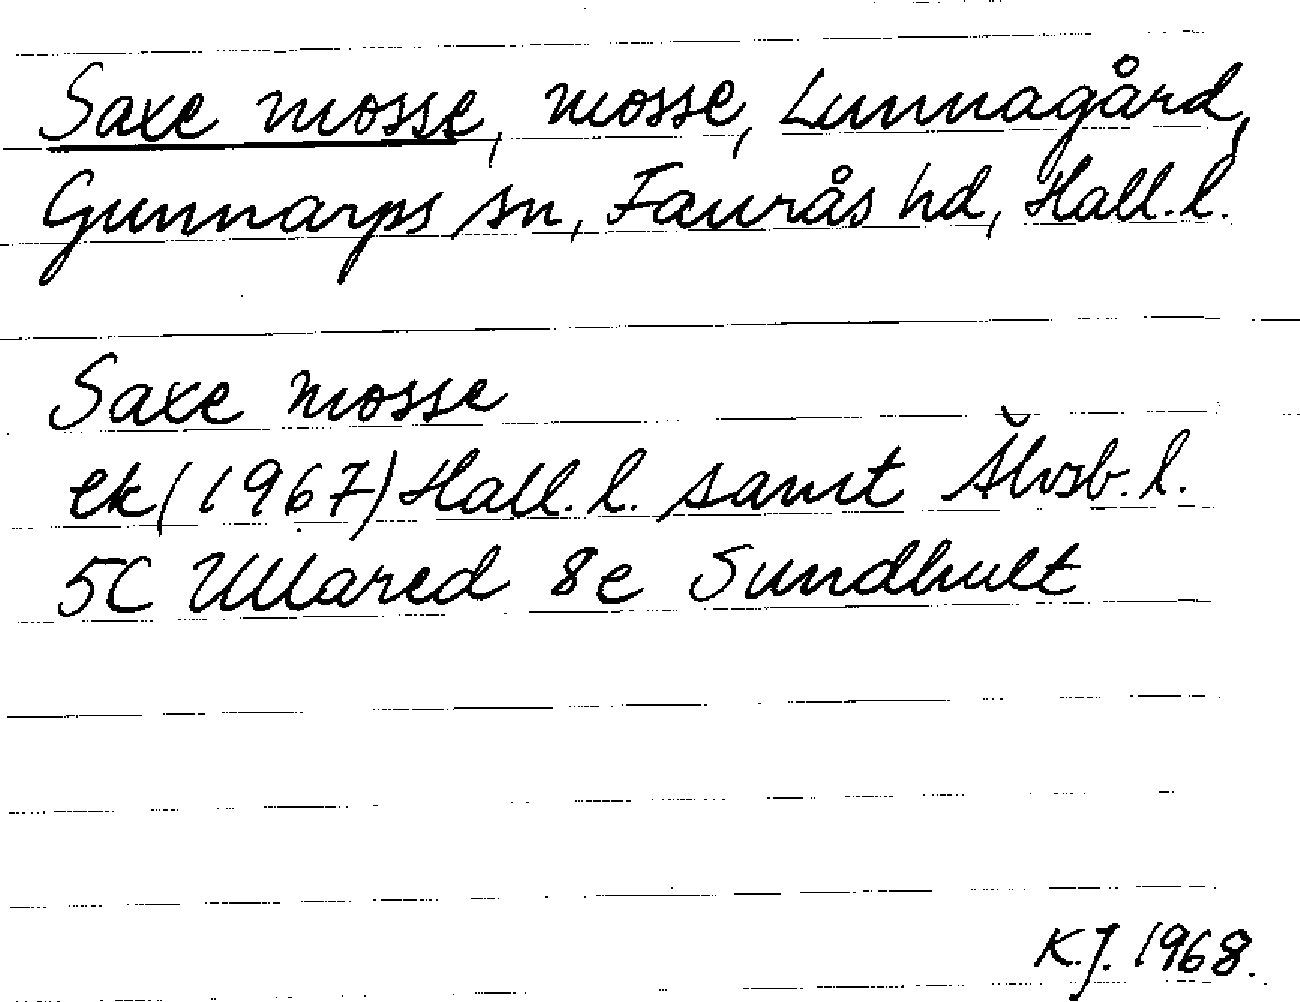 Saxe mosse, mosse, Lunnagård,
Gunnarps sn, Faurås hd, Hall.l.
Saxe mosse
ek(1967) Hall.l. samt Älvsb.l.
5C Ullared 8e Sundhult
K.J. 1968.